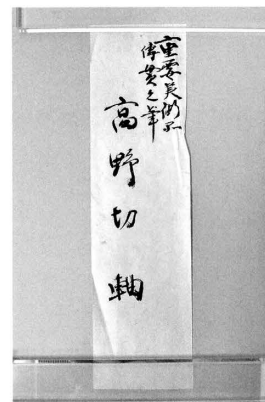 重要美術品
伝貫之筆
高野切軸